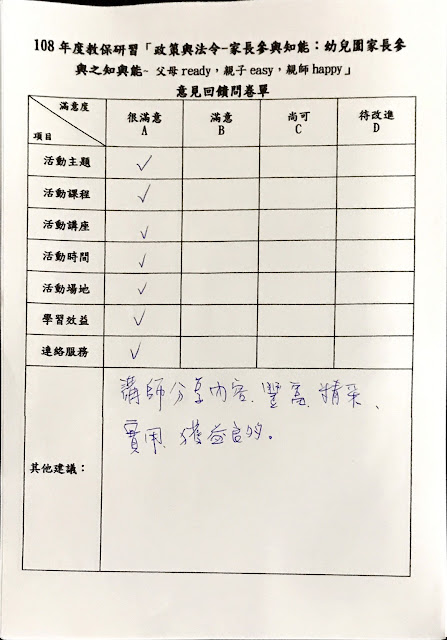 108 年度教保研習「政策與法令-家長參與知能：幼兒園家長參
與之知與能~ 父母 ready，親子 easy，親師 happy」
意見回饋問卷單
滿意度
項目
很滿意 滿意 尚可 待改進
A B C D
活動主題 ✓
活動課程 ✓
活動講座 ✓
活動時間 ✓
活動場地 ✓
學習效益 ✓
連絡服務 ✓
其他建議：
講師分享內容豐富、精采、
實用、獲益良多。